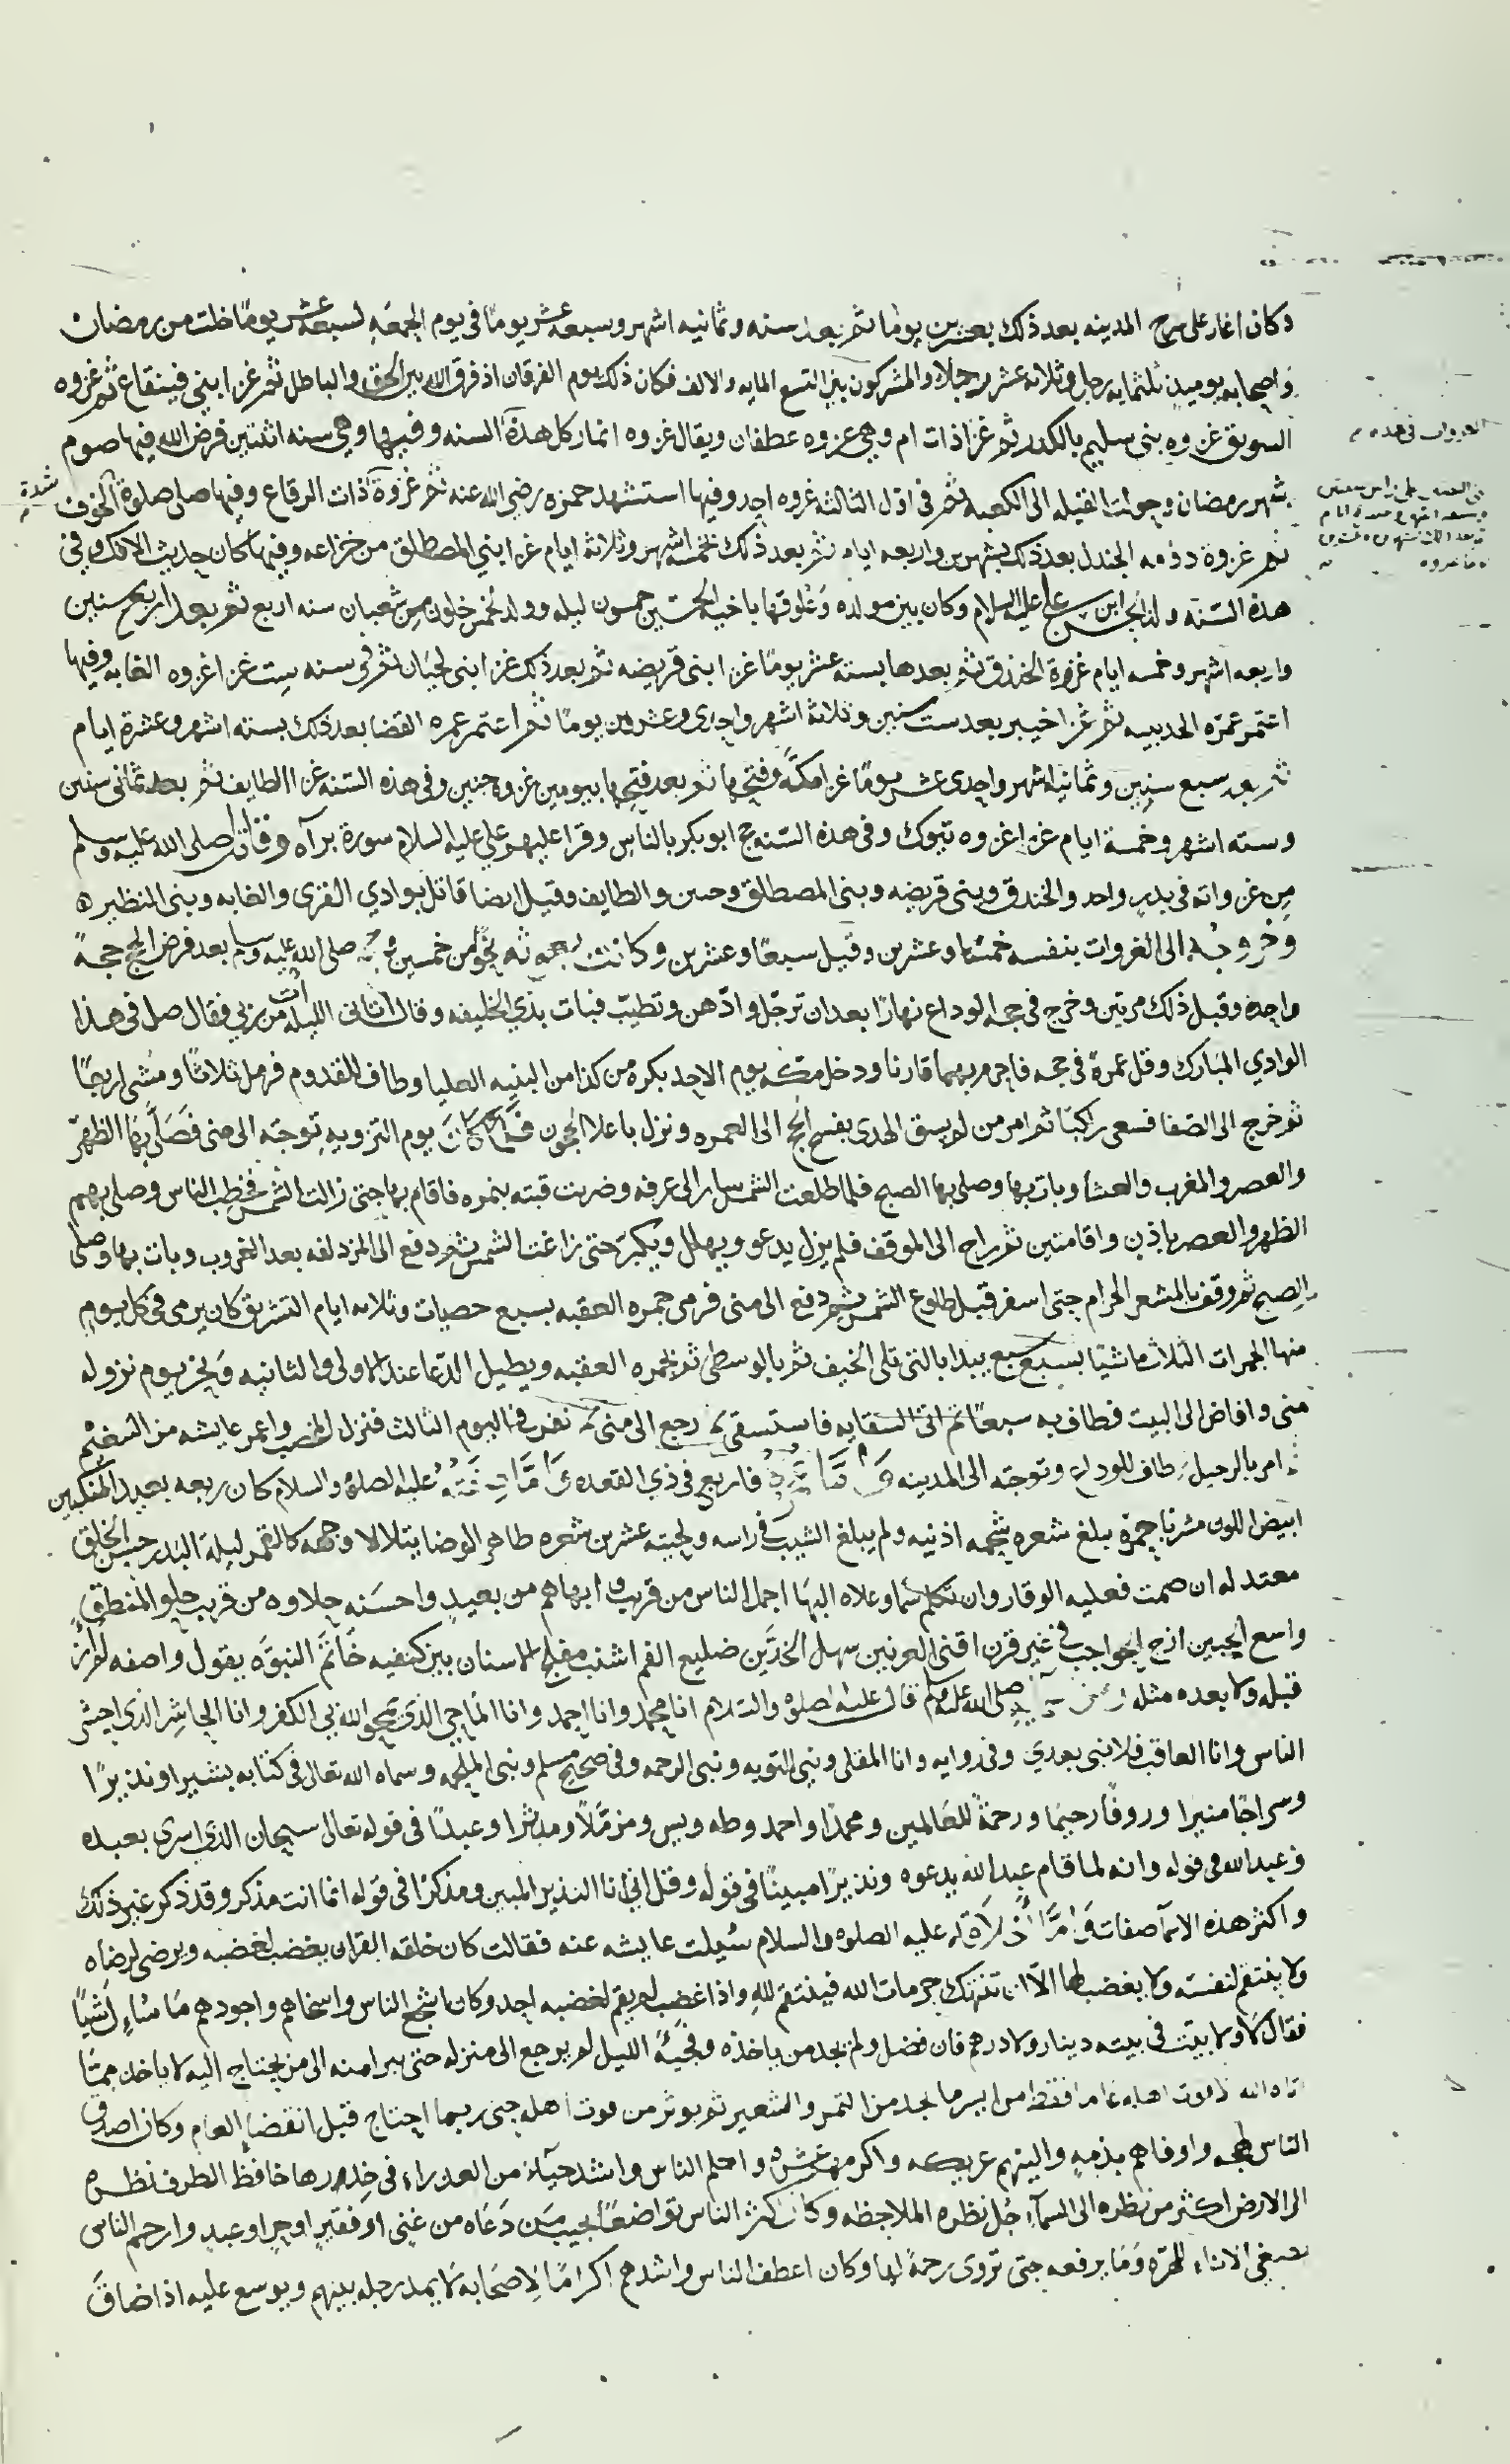 وكان اغار على سرح المدينه بعد ذلك بعشرين يوما ثم بعد سنه وثمانيه اشهر وسبعه عشر يوما في يوم الجمعه لسبعه عشر يوما خلت من رمضان
واصحابه يوميذ ثلثمايه رجل وثلاثه عشر رجلا والمشركون بين التسع المايه والالف فكان ذلك يوم الفرقان اذ فرق الله بين الحق والباطل ثم غزا بني قينقاع ثم غزوه
السويق غزوه بني سليم بالكدر ثم غزا ذات امر وهي غزوه غطفان ويقال غزوه انمار كل هذه السنه وفيها وهي سنه اثنتين فرض الله فيها صوم
شهر رمضان وحولت القبله الى الكعبه ثم في اول الثالثه غزوه احد وفيها استشهد حمزه رضي الله عنه ثم غزوة ذات الرقاع وفيها صلى صلوة الخوف
ثم غزوة دومه الجندل بعد ذلك بشهرين واربعه ايام ثم بعد ذلك بخمسه اشهر وثلاثه ايام غزا بني المصطلق من خزاعه وفيها كان حديث الافك وفي
هذه السنه ولد الحسن ابن علي عليه السلام وكان بين مولده وعلوقها باخيه الحسين خمسون ليله وولد لخمس خلون من شعبان سنه اربع ثم بعد اربع سنين
واربعه اشهر وخمسه ايام غزوة الخندق ثم بعدها بسته عشر يوما غزا بني قريضه ثم بعد ذلك غزا بني لحيان ثم في سنه ست غزا غزوه الغابه وفيها
اعتمر عمره الحديبيه ثم غزا خيبر بعد ست سنين وثلاثة اشهر واحدى وعشرين يوما ثم اعتمر عمره القضا بعد ذلك بسته اشهر وعشرة ايام
ثم بعد سبع سنين وثمانيه اشهر واحدى عشر يوما غزا مكة وفتحها ثم بعد فتحها بيومين غزوه حنين وفي هذه السنه غزا الطايف ثم بعد ثماني سنين
وسته اشهر وخمسة ايام غزا غزوه تبوك وفي هذه السنه حج ابو بكر بالناس وقرا عليهم علي عليه السلام سورة براه وقاتل صلى الله عليه وسلم
من غزواته في بدر واحد والخندق وبني قريضه وبني المصطلق وحنين والطايف وقيل ايضا قاتل بوادي القرى والغابه وبني النظير
وخروجه الى الغزوات بنفسه خمسا وعشرين وقيل سبعا وعشرين وكانت بعوثه نحوا من خمسين حج صلى الله عليه وسلم بعد فرض الحج حجة
واحده وقبل ذلك مرتين وخرج في حجه الوداع نهارا بعد ان ترجل وادهن وتطيب فبات بذي الحليفه وقال اتاني الليله آت من ربي فقال صل في هذا
الوادي المبارك وقل عمرة في حجه فاحرم بهما قارنا ودخل مكه يوم الاحد بكرة من كدا من الثنيه العليا وطاف للقدوم فرمل ثلاثا ومشى اربعا
ثم خرج الى الصفا فسعى راكبا ثم امر من لم يسق الهدى بفسخ الحج الى العمره ونزل باعلا الحجون فلما كان يوم الترويه توجه الى منى فصلى بها الظهر
والعصر والمغرب والعشا وبات بها وصلى بها الصبح فلما طلعت الشمس سار الى عرفه وضربت قبته بنمره فاقام بها حتى زالت الشمس فخطب الناس وصلى بهم
الظهر والعصر باذان واقامتين ثم راح الى الموقف فلم يزل يدعو ويهلل ويكبر حتى زاغت الشمس ثم دفع الى المزدلفه بعد الغروب وبات بها وصلى
الصبح ثم وقف بالمشعر الحرام حتى اسفر قبل طلوع الشمس ثم دفع الى منى فرمى جمره العقبه بسبع حصيات وثلاثه ايام التشريق كان يرمي في كل يوم
منها الجمرات الثلاث ماشيا بسبع سبع يبدا بالتي تلي الخيف ثم بالوسطى ثم بجمره العقبه ويطيل الدعا عند الاولى والثانيه ونحر يوم نزوله
منى وافاض الى البيت فطاف به سبعا ثم اتى السقايه فاستسقى ثم رجع الى منى ثم نفر في اليوم الثالث فنزل المحصب واعمر عايشه من التنعيم
ثم امر بالرحيل وطاف للوداع وتوجه الى المدينه فاربع في ذي القعده واما صفته عليه الصلاة والسلام كان ربعه بعيد المنكبين
ابيض اللون مشربا حمرة يبلغ شعره شحمه اذنيه ولم يبلغ الشيب في راسه ولحيته عشرين شعره ظاهر الوضا يتلالا وجهه كالقمر ليلة البدر حسن الخلق
معتدله ان صمت فعليه الوقار وان تكلم سما وعلاه البها اجمل الناس من قريب وابهاهم من بعيد واحسنه حلاوه من قريب حلو المنطق
واسع الجبين ازج الحواجب في غير قرن اقنى العرنين سهل الخدين ضليع الفم اشنب مفلج الاسنان بين كتفيه خاتم النبوه يقول واصفه لم ار
قبله ولا بعده مثله صلى الله عليه وسلم قال عليه الصلوة والسلام انا محمد وانا احمد وانا الماحي الذي يمحو الله بي الكفر وانا الحاشر الذي احشر
الناس وانا العاقب فلا نبي بعدي وفي روايه وانا المقفى ونبي التوبه ونبي الرحمه وفي صحيح مسلم ونبي الملحمه وسماه الله تعالى في كتابه بشيرا ونذيرا
وسراجا منيرا وروفا رحيما ورحمة للعالمين ومحمدا واحمد وطه ويس ومزملا ومدثرا وعبدا في قوله تعالى سبحان الذي اسرى بعبده
وعبد الله في قوله وانه لما قام عبد الله يدعوه ونذيرا مبينا في قوله وقل اني انا النذير المبين ومذكرا في قوله انما انت مذكر وقد ذكر غير ذلك
واكثر هذه الاسما صفات واما اخلاقه عليه الصلوه والسلام سيلت عايشه عنه فقالت كان خلقه القران يغضب لغضبه ويرضى لرضاه
ولا ينتقم لنفسه ولا يغضب لها الا ان تنتهك حرمات الله فينتقم لله واذا غضب لم يقم لغضبه احد وكان اشجع الناس واسخاهم واجودهم ما سئل شيا
فقال لا ولا يبيت في بيته دينار ولا درهم فان فضل ولم يجد من ياخذه وفجئه الليل لم يرجع الى منزله حتى يبرا منه الى من يحتاج اليه لا ياخذ مما
اتاه الله الا قوت اهله عامه فقط من ايسر ما يجد من التمر والشعير ثم يوثر من قوت اهله حتى ربما احتاج قبل انقضا العام وكان اصدق
الناس لهجه واوفاهم بذمه والينهم عريكه واكرمهم عشرة واحلم الناس واشد حياء من العذراء في خدرها خافظ الطرف نظره
الى الارض اكثر من نظره الى السماء جل نظره الملاحظه وكان اكثر الناس تواضعا يجيب من دعاه من غني او فقير او حر او عبد وارحم الناس
يصغي الاناء للهره وما يرفعه حتى تروى رحمة لها وكان اعطف الناس واشدهم اكراما لاصحابه لا يمد رجله بينهم ويوسع عليه اذا ضاق